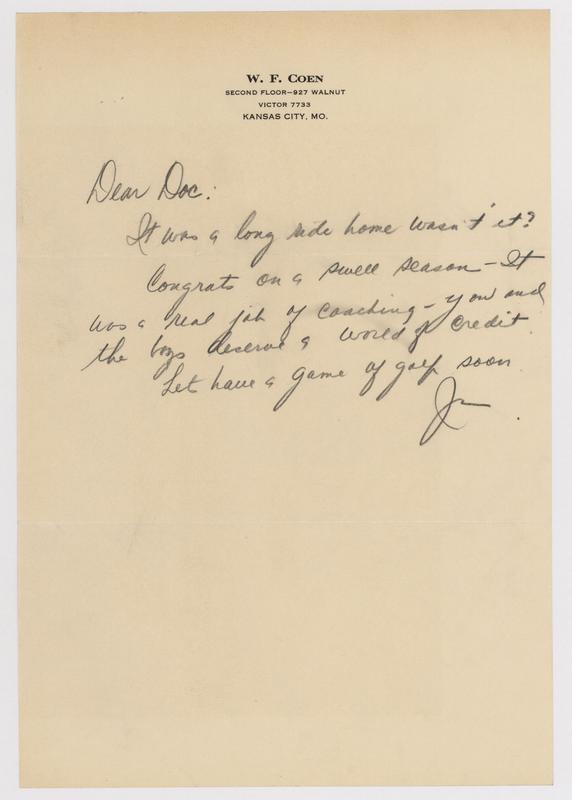 W. F. COEN
SECOND FLOOR—927 WALNUT
VICTOR 7733
KANSAS CITY, MO.
Dear Doc:
It was a long ride home wasn't it?
Congrats on a swell season - It
was a real job of coaching - you and
the boys deserve a world of credit.
Let have a game of golf soon.